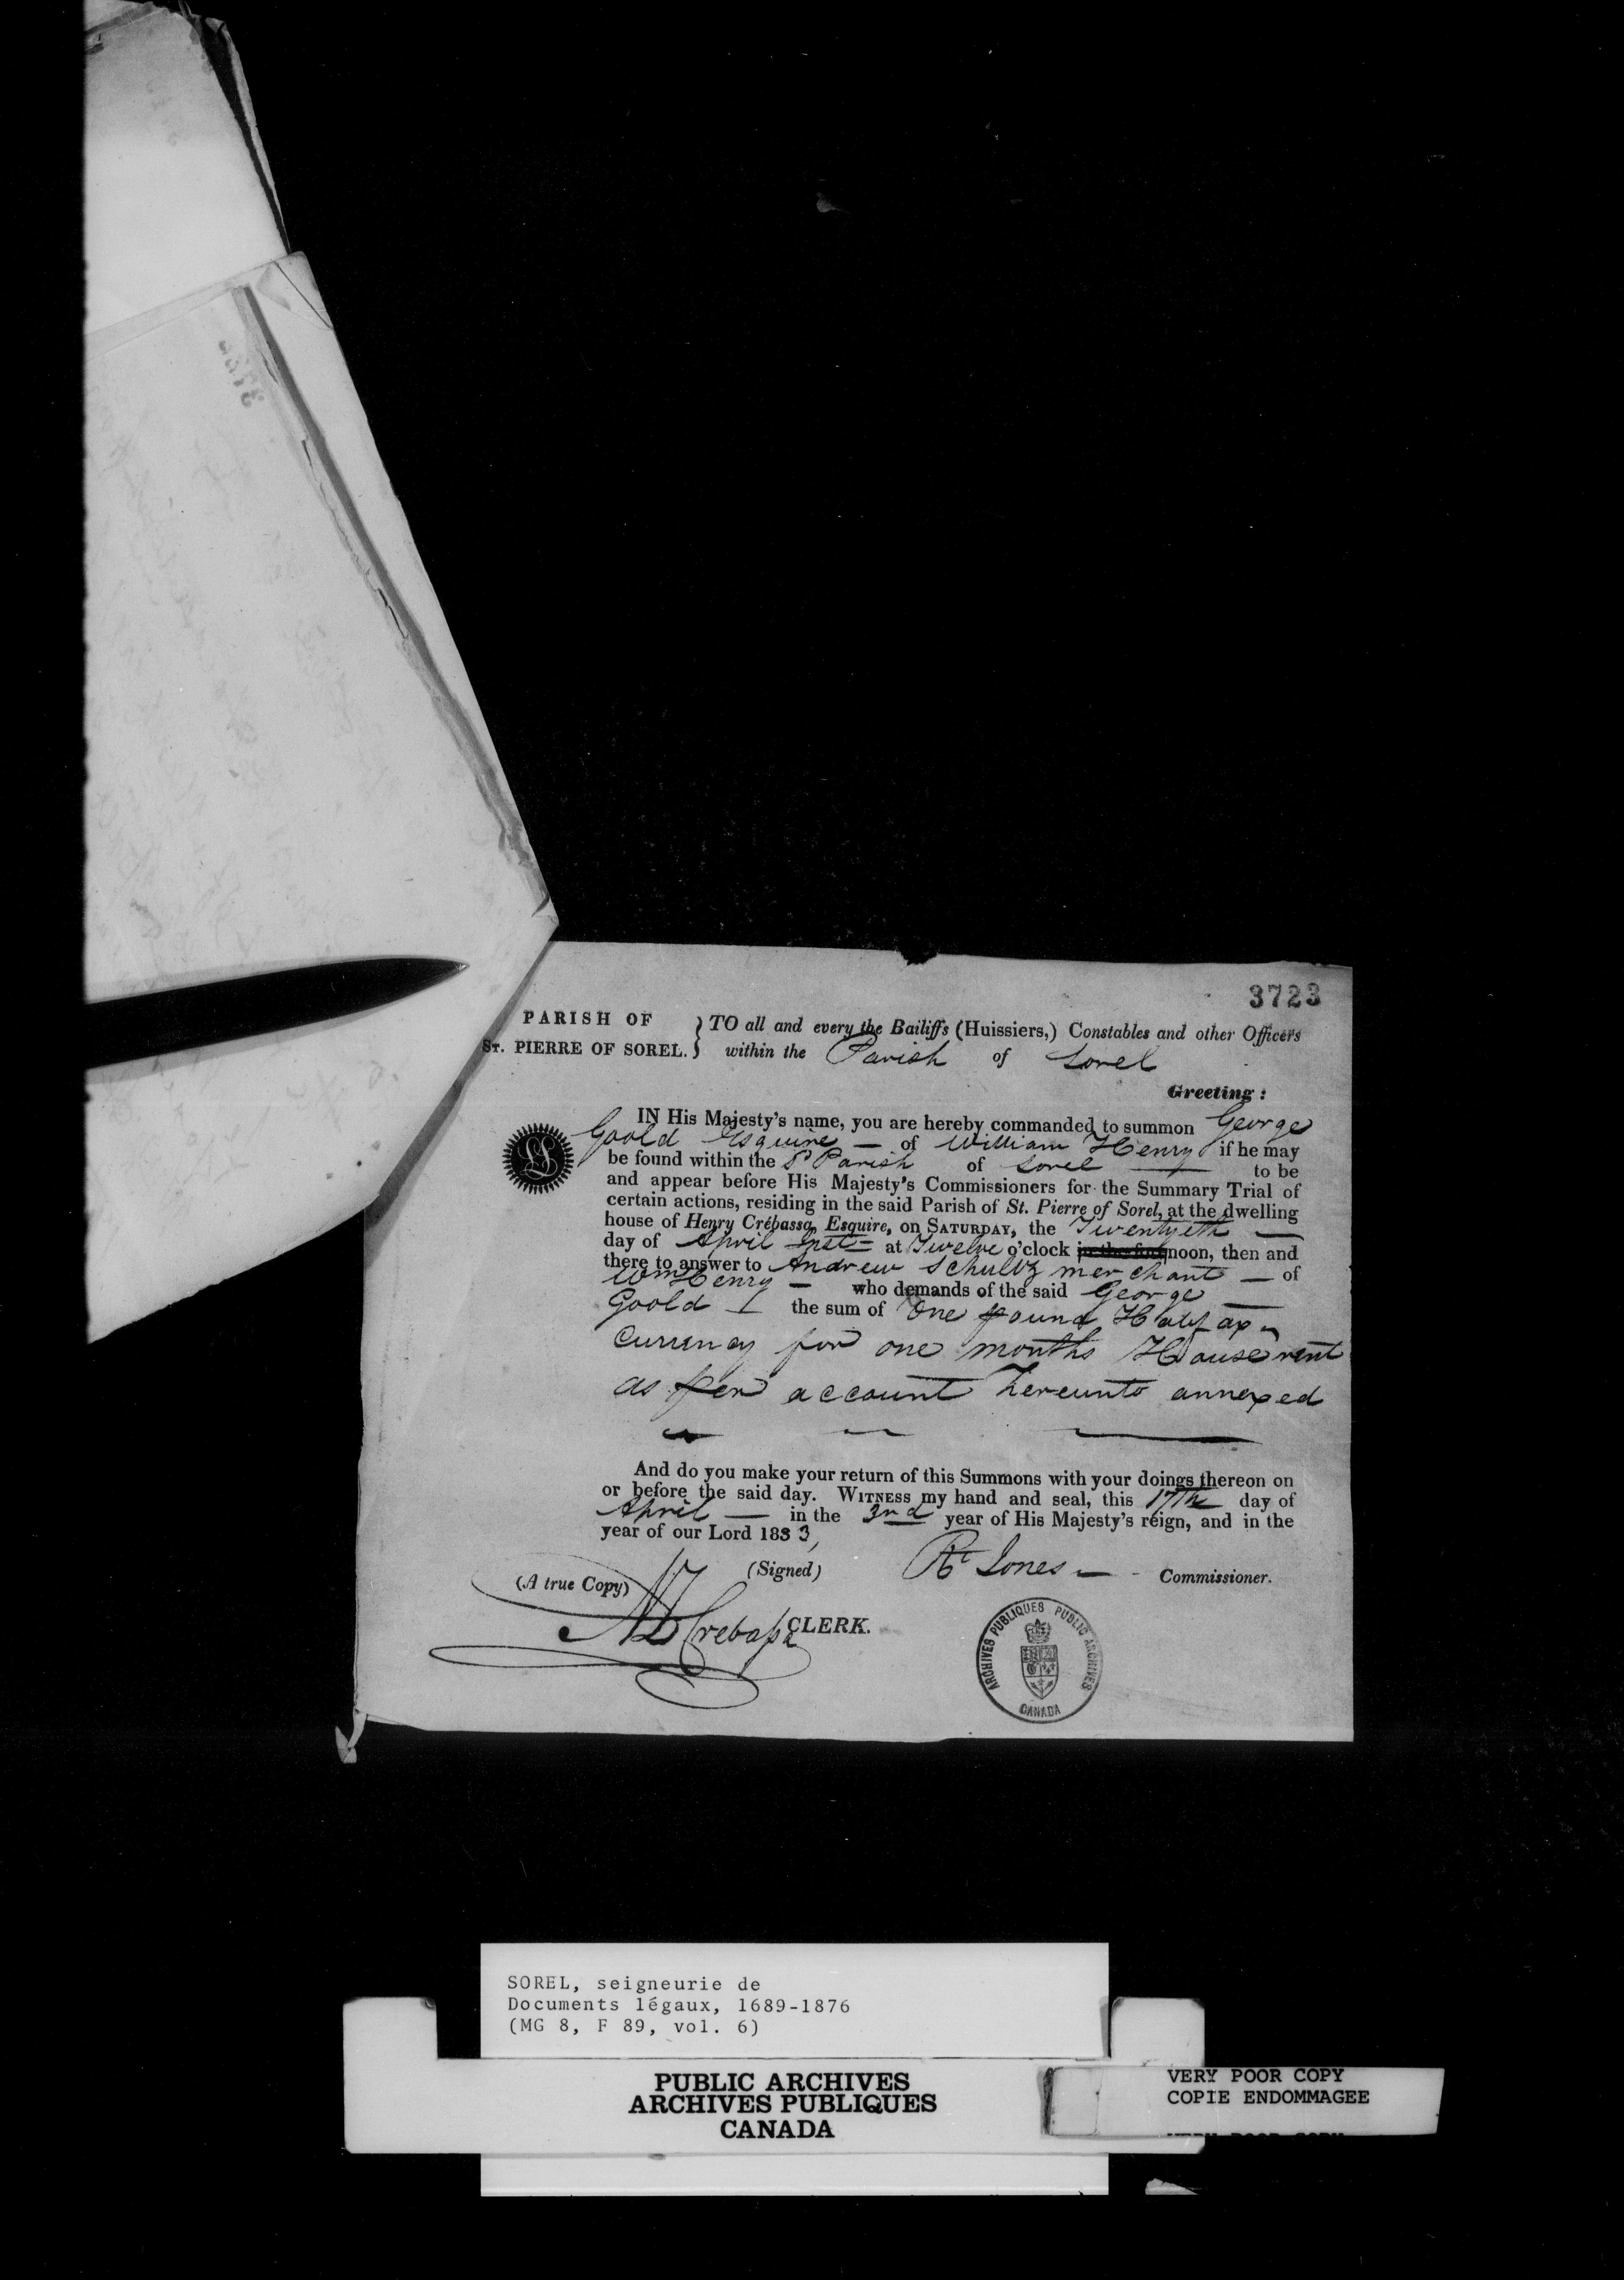 3723
PARISH OF
ST. PIERRE OF SOREL.
TO all and every the Bailiffs (Huissiers,) Constables and other Officers
within the Parish of Sorel
Greeting:
IN His Majesty's name, you are hereby commanded to summon George
Goold Esquire — of William Henry if he may
be found within the Sd Parish of Sorel — to be
and appear before His Majesty's Commissioners for the Summary Trial of
certain actions, residing in the said Parish of St. Pierre of Sorel, at the dwelling
house of Henry Crébassa, Esquire, on SATURDAY, the Twentyeth —
day of April Inst = at Twelve o'clock in the forenoon, then and
there to answer to Andrew Schultz merchant — of
Wm Henry — who demands of the said George —
Goold — the sum of One pound Halifax
Currency for one months House rent
as per account hereunto annexed
LS
And do you make your return of this Summons with your doings thereon on
or before the said day. WITNESS my hand and seal, this 17th day of
April — in the 3rd year of His Majesty's reign, and in the
year of our Lord 1833,
(Signed) Rt Jones — Commissioner.
(A true Copy)
Crebassa CLERK.
ARCHIVES PUBLIQUES PUBLIC ARCHIVES
CANADA
SOREL, seigneurie de
Documents légaux, 1689-1876
(MG 8, F 89, vol. 6)
PUBLIC ARCHIVES
ARCHIVES PUBLIQUES
CANADA
VERY POOR COPY
COPIE ENDOMMAGEE
VERY POOR COPY